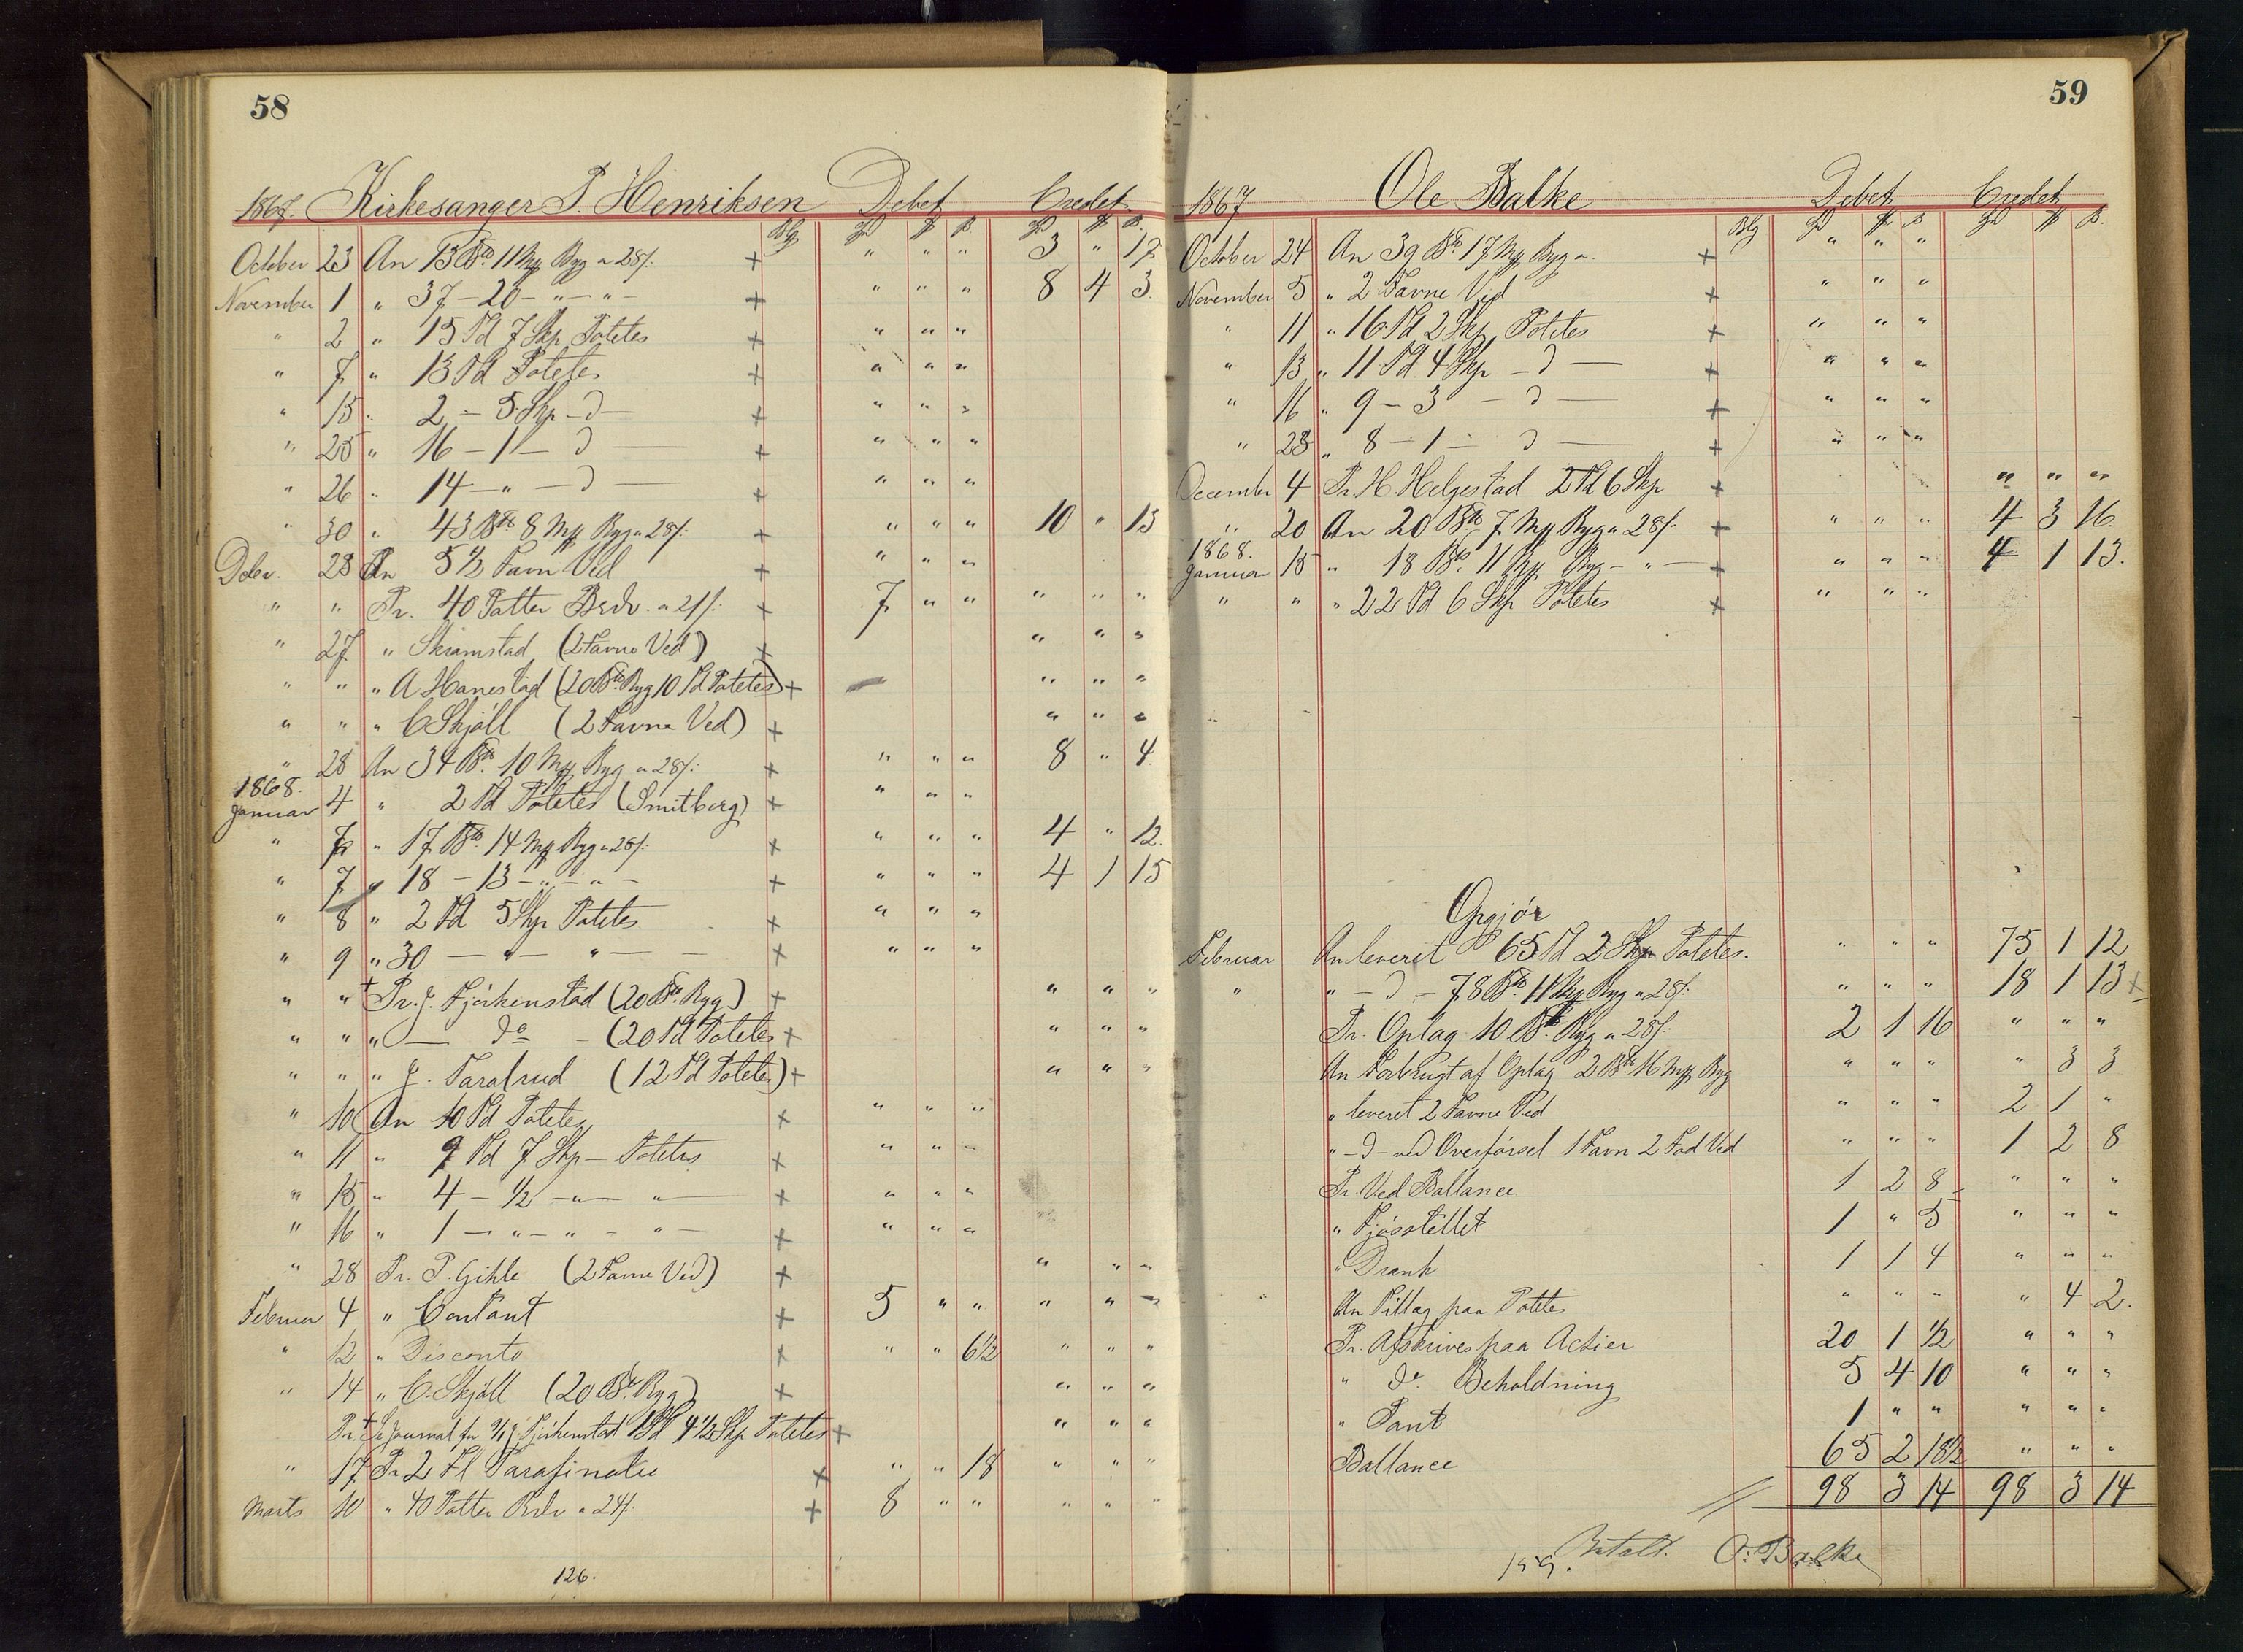 58
1867. Kirkesanger P. Henriksen Debet Credet
Blg
October 23 An 13 Bd. 11 Mp Byg a 28/: + " " " 3 " 17
November 1 " 37 - 20 - " - " - + " " " 8 4 3.
" 2 " 15 Td 7 Skp Potetes + " " "
" 7 " 13 Td Potetes + " " "
" 15 " 2 - 5 Skp - d - + " " "
" 25 " 16 - 1 - d - + " " "
" 26 " 14 - " - d - + " " "
" 30 " 43 Bd 8 Mp Byg a 28/: + " " " 10 " 13
Debr. 23 An 5 1/2 Favn Ved + " " "
" " Pr. 40 Potter Brdv. a 21/: + 7 " " " " "
" 27 " Skramstad (2 Favne Ved) + " " "
" " " A Hanestad (20 Bd. Byg 10 Td Potetes) + " " "
" " " C Skjöll (2 Favne Ved) + " " "
" 28 An 34 Bd. 10 Mp Byg a 28/: + " " " 8 " 4.
1868.
Januar 4 " 2 Td Potetes (Smitberg) + " " "
" 7 " 17 Bd. 14 Mp Byg a 28/: + " " " 4 " 12.
" 7 " 18 - 13 - " - " - + " " " 4 1 15
" 8 " 2 Td 5 Skp Potetes + " " "
" 9 " 30 - " - " - + " " "
" " + Pr. J. Fjörkenstad (20 Bd. Byg) + " " "
" " " - do - (20 Td Potetes + " " "
" " " J. Taralrud (12 Td Potetes) + " " "
" 10 An 10 Td Potetes + " " "
" 11 " 9 Td 7 Skp - Potetes + " " "
" 15 " 4 - 1/2 - " - " - + " " "
" 16 " 1 - " - " - " - + " " "
" 28 Pr. P. Gihle (2 Favne Ved) + " " "
Februar 4 " Contant + 5 " " " " "
" 12 " Disconto + " " 6 1/2 " " "
" 14 " C. Skjöll (20 Bd. Byg) + " " "
Pr. + Se Journal for 9/1 J. Fjörkenstad 1 Td 4 1/2 Skp Potetes + " " "
" 17 Pr 2 Fl Parafinolie + " " 18 " " "
Marts 10 " 40 Potter Brdv a 24/: + 8 " " " " "
126.
59
1867 Ole Balke Debet Credet
Blg
October 24 An 39 Bd 17 Mp Byg a. + " " "
November 5 " 2 Favne Ved + " " "
" 11 " 16 Td 2 Skp Potetes + " " "
" 13 " 11 Td 4 Skp - d - + " " "
" 16 " 9 - 3 - d - + " " "
" 23 " 8 - 1 - d - + " " "
December 4 Pr. H. Helgestad 2 Td 6 Skp + " " "
" 20 An 20 Bd. 7 Mp Byg a 28/: + " " " 4 3 16.
1868.
Januar 15 " 18 Bd. 11 Mp Byg - " - + " " " 4 1 13.
" " " 22 Td 6 Skp Potetes + " " "
Opgjör
Februar An leveret 65 Td 2 Skp Potetes. " " " 75 1 12
" " - d - 78 Bd. 11 Mp Byg a 28/: " " " 18 1 13 +
Pr. Oplag 10 Bd. Byg a 28/: 2 1 16 " " "
An Forbrugt af Oplag 2 Bd 16 Mp Byg " " " " 3 3
" leveret 2 Favne Ved " " " 2 1 "
" - d - ved Overförsel 1 Favn 2 Fod Ved " " " 1 2 8
Pr. Ved Ballance 1 2 8 " " "
" Fjösstellet 1 " 5 " " "
" Drank 1 1 4 " " "
An Tillæg paa Potetes " " " " 4 2.
Pr. Afskrives paa Actier 20 1 1/2 " " "
" do. Beholdning 5 4 10 " " "
" Pant 1 " " " " "
Ballance 65 2 18 1/2 " " "
98 3 14 98 3 14
159. Betalt. O: Balke